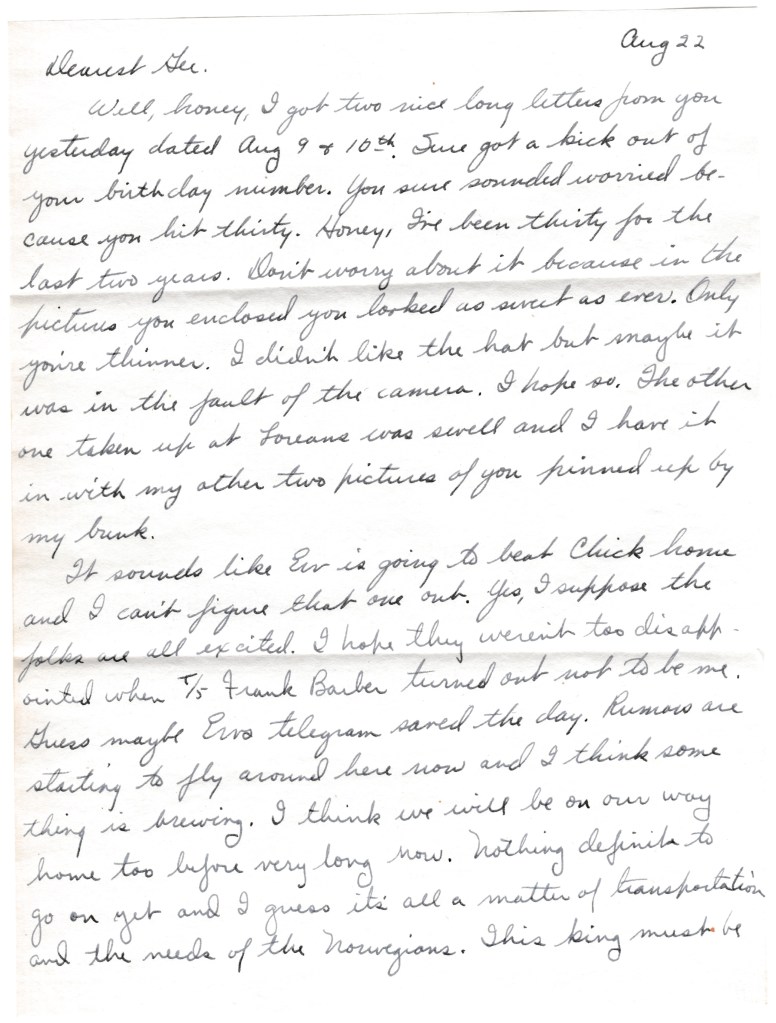 Aug 22
Dearest Ger.
Well, honey, I got two nice long letters from you
yesterday dated Aug 9 & 10th. Sure got a kick out of
your birthday number. You sure sounded worried be-
cause you hit thirty. Honey, I've been thirty for the
last two years. Don't worry about it because in the
pictures you enclosed you looked as sweet as ever. Only
you're thinner. I didn't like the hat but maybe it
was in the fault of the camera. I hope so. The other
one taken up at Loreans was swell and I have it
in with my other two pictures of you pinned up by
my bunk.
It sounds like Erv is going to beat Chick home
and I can't figure that one out. Yes, I suppose the
folks are all excited. I hope they weren't too disapp-
ointed when T/5 Frank Barber turned out not to be me.
Guess maybe Ervs telegram saved the day. Rumors are
starting to fly around here now and I think some
thing is brewing. I think we will be on our way
home too before very long now. Nothing definite to
go on yet and I guess it's all a matter of transportation
and the needs of the Norwegians. This king must be